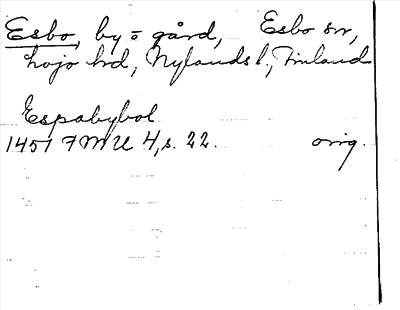 Esbo, by o gård, Esbo sn,
Lojo hd, Nylands l., Finland
Espabybol
1451 FMU 4, s. 22. orig.